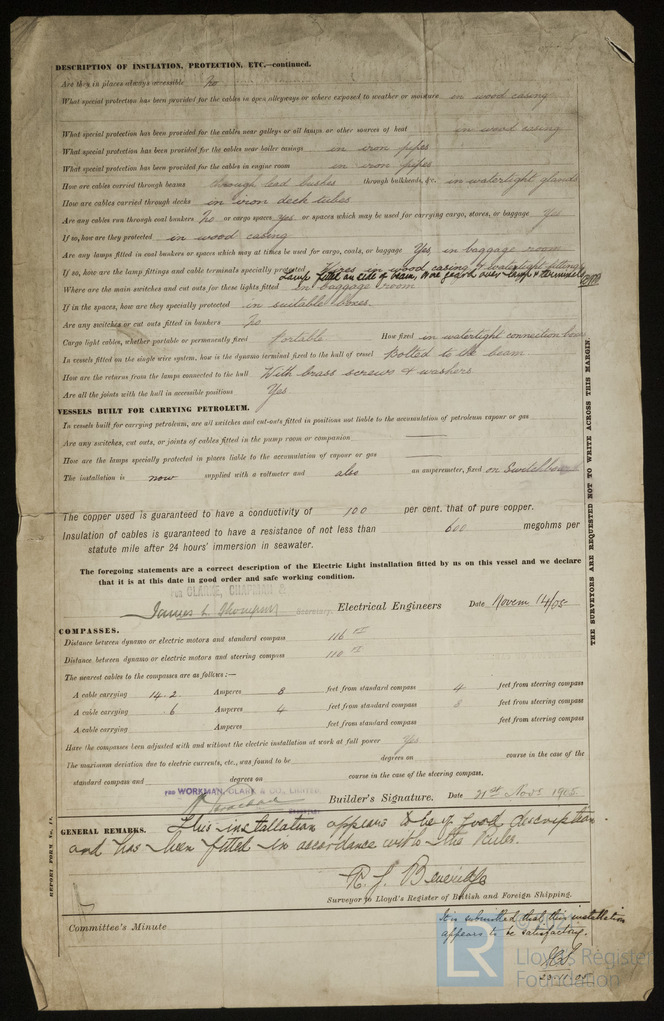 DESCRIPTION OF INSULATION, PROTECTION, ETC.—continued.
Are they in places always accessible No
What special protection has been provided for the cables in open alleyways or where exposed to weather or moisture in wood casing
What special protection has been provided for the cables near galleys or oil lamps or other sources of heat in wood casing
What special protection has been provided for the cables near boiler casings in iron pipes
What special protection has been provided for the cables in engine room in iron pipes
How are cables carried through beams through lead bushes through bulkheads, &c. in watertight glands
How are cables carried through decks in iron deck tubes
Are any cables run through coal bunkers No or cargo spaces yes or spaces which may be used for carrying cargo, stores, or baggage yes
If so, how are they protected in wood casing
Are any lamps fitted in coal bunkers or spaces which may at times be used for cargo, coals, or baggage Yes, in baggage room
If so, how are the lamp fittings and cable terminals specially protected Wires in wood casing & watertight fittings
Lamp fitted on side of beam, wire guard over lamp &
Where are the main switches and cut outs for these lights fitted In baggage room
If in the spaces, how are they specially protected in suitable boxes.
Are any switches or cut outs fitted in bunkers No
Cargo light cables, whether portable or permanently fixed Portable How fixed in watertight connection boxes
In vessels fitted on the single wire system, how is the dynamo terminal fixed to the hull of vessel Bolted to the beam
How are the returns from the lamps connected to the hull With brass screws & washers
Are all the joints with the hull in accessible positions Yes
VESSELS BUILT FOR CARRYING PETROLEUM.
In vessels built for carrying petroleum, are all switches and cut-outs fitted in positions not liable to the accumulation of petroleum vapour or gas
Are any switches, cut outs, or joints of cables fitted in the pump room or companion
How are the lamps specially protected in places liable to the accumulation of vapour or gas
The installation is now supplied with a voltmeter and also an amperemeter, fixed on Switchboard
The copper used is guaranteed to have a conductivity of 100 per cent. that of pure copper.
Insulation of cables is guaranteed to have a resistance of not less than 600 megohms per
statute mile after 24 hours' immersion in seawater.
The foregoing statements are a correct description of the Electric Light installation fitted by us on this vessel and we declare
that it is at this date in good order and safe working condition.
FOR CLARKE, CHAPMAN &
James L. Thompson Secretary. Electrical Engineers Date Novem 14/05
COMPASSES.
Distance between dynamo or electric motors and standard compass 116 ft
Distance between dynamo or electric motors and steering compass 110 ft
The nearest cables to the compasses are as follows:—
A cable carrying 14.2 Amperes 8 feet from standard compass 4 feet from steering compass
A cable carrying .6 Amperes 4 feet from standard compass 8 feet from steering compass
A cable carrying Amperes feet from standard compass feet from steering compass
Have the compasses been adjusted with and without the electric installation at work at full power Yes
The maximum deviation due to electric currents, etc., was found to be degrees on course in the case of the
standard compass and degrees on course in the case of the steering compass.
FOR WORKMAN, CLARK & CO., LIMITED
Builder's Signature. Date 21st Novr 1905.
GENERAL REMARKS. This installation appears to be of good description
and has been fitted in accordance with the Rules.
R. J. Beveridge
Surveyor to Lloyd's Register of British and Foreign Shipping.
Committee's Minute
It is submitted that this installation
appears to be satisfactory.
23.11.05
REPORT FORM No. 14.
THE SURVEYORS ARE REQUESTED NOT TO WRITE ACROSS THIS MARGIN.
LR
Lloyd's Register
Foundation